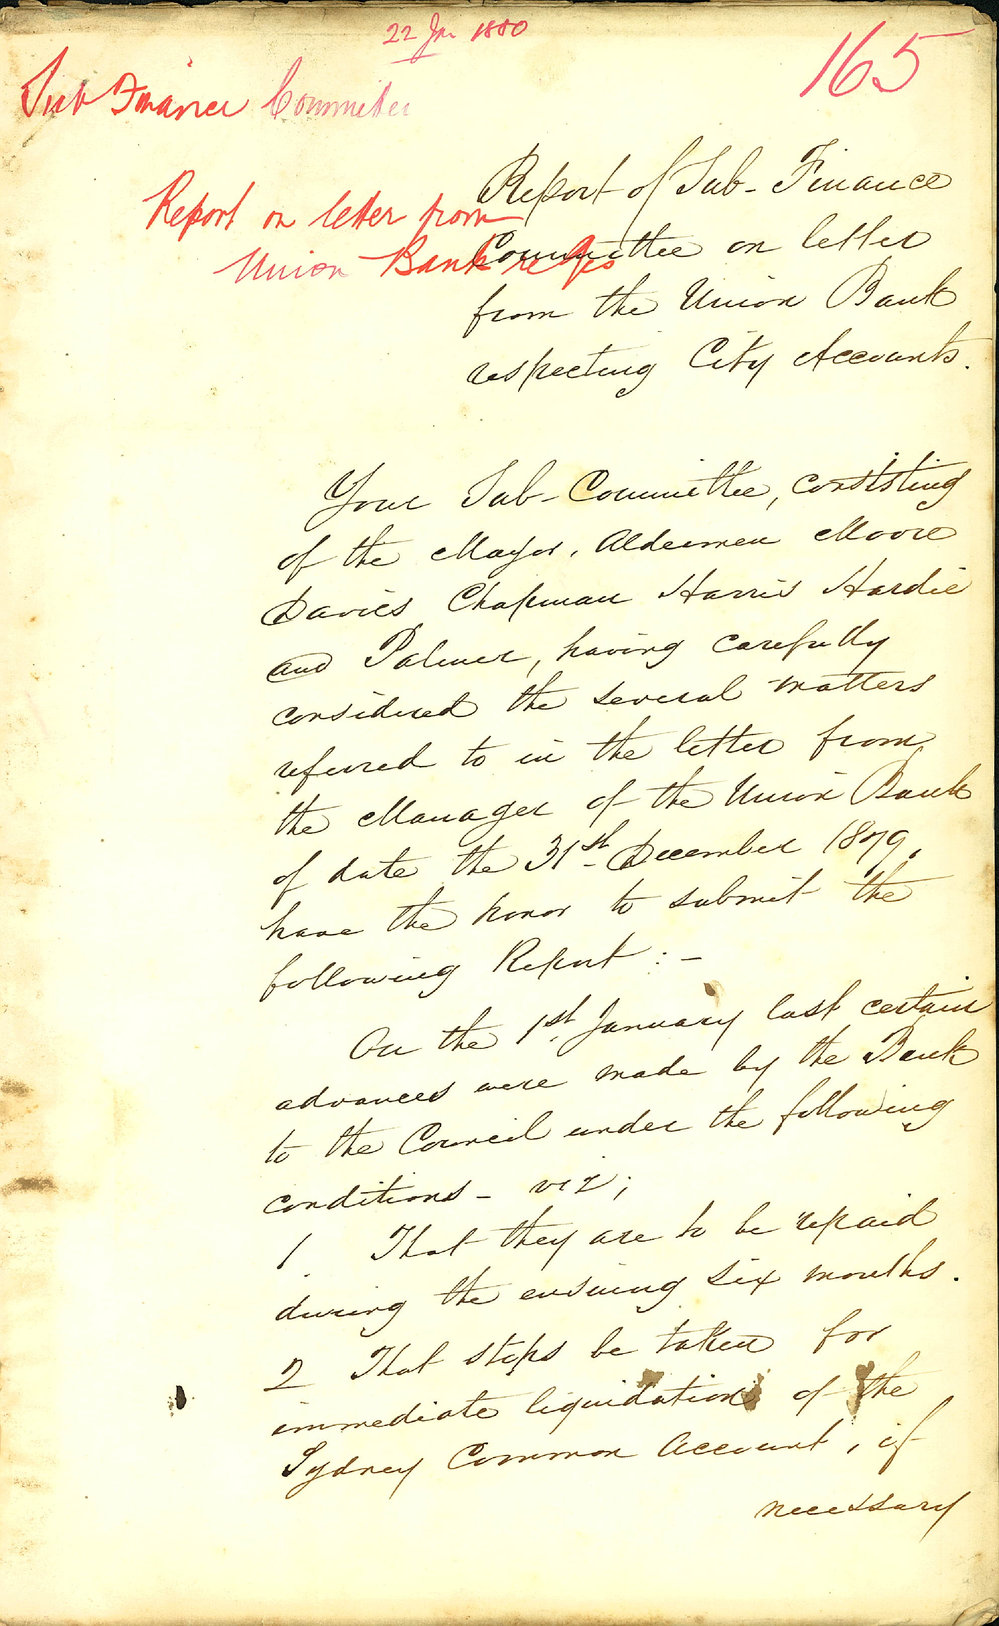 22 Jan 1880
165
Sub Finance Committee
Report on letter from
Union Bank re A/cs
Report of Sub-Finance
Committee on letter
from the Union Bank
respecting City Accounts.
Your Sub-Committee, consisting
of the Mayor, Aldermen Moore
Davies Chapman Harris Hardie
and Palmer, having carefully
considered the several matters
referred to in the letter from
the Manager of the Union Bank
of date the 31st December 1879,
have the honor to submit the
following Report :-
On the 1st January last certain
advances were made by the Bank
to the Council under the following
conditions - viz;
1 That they are to be repaid
during the ensuing six months.
2 That steps be taken for
immediate liquidation of the
Sydney Common Account, if
necessary